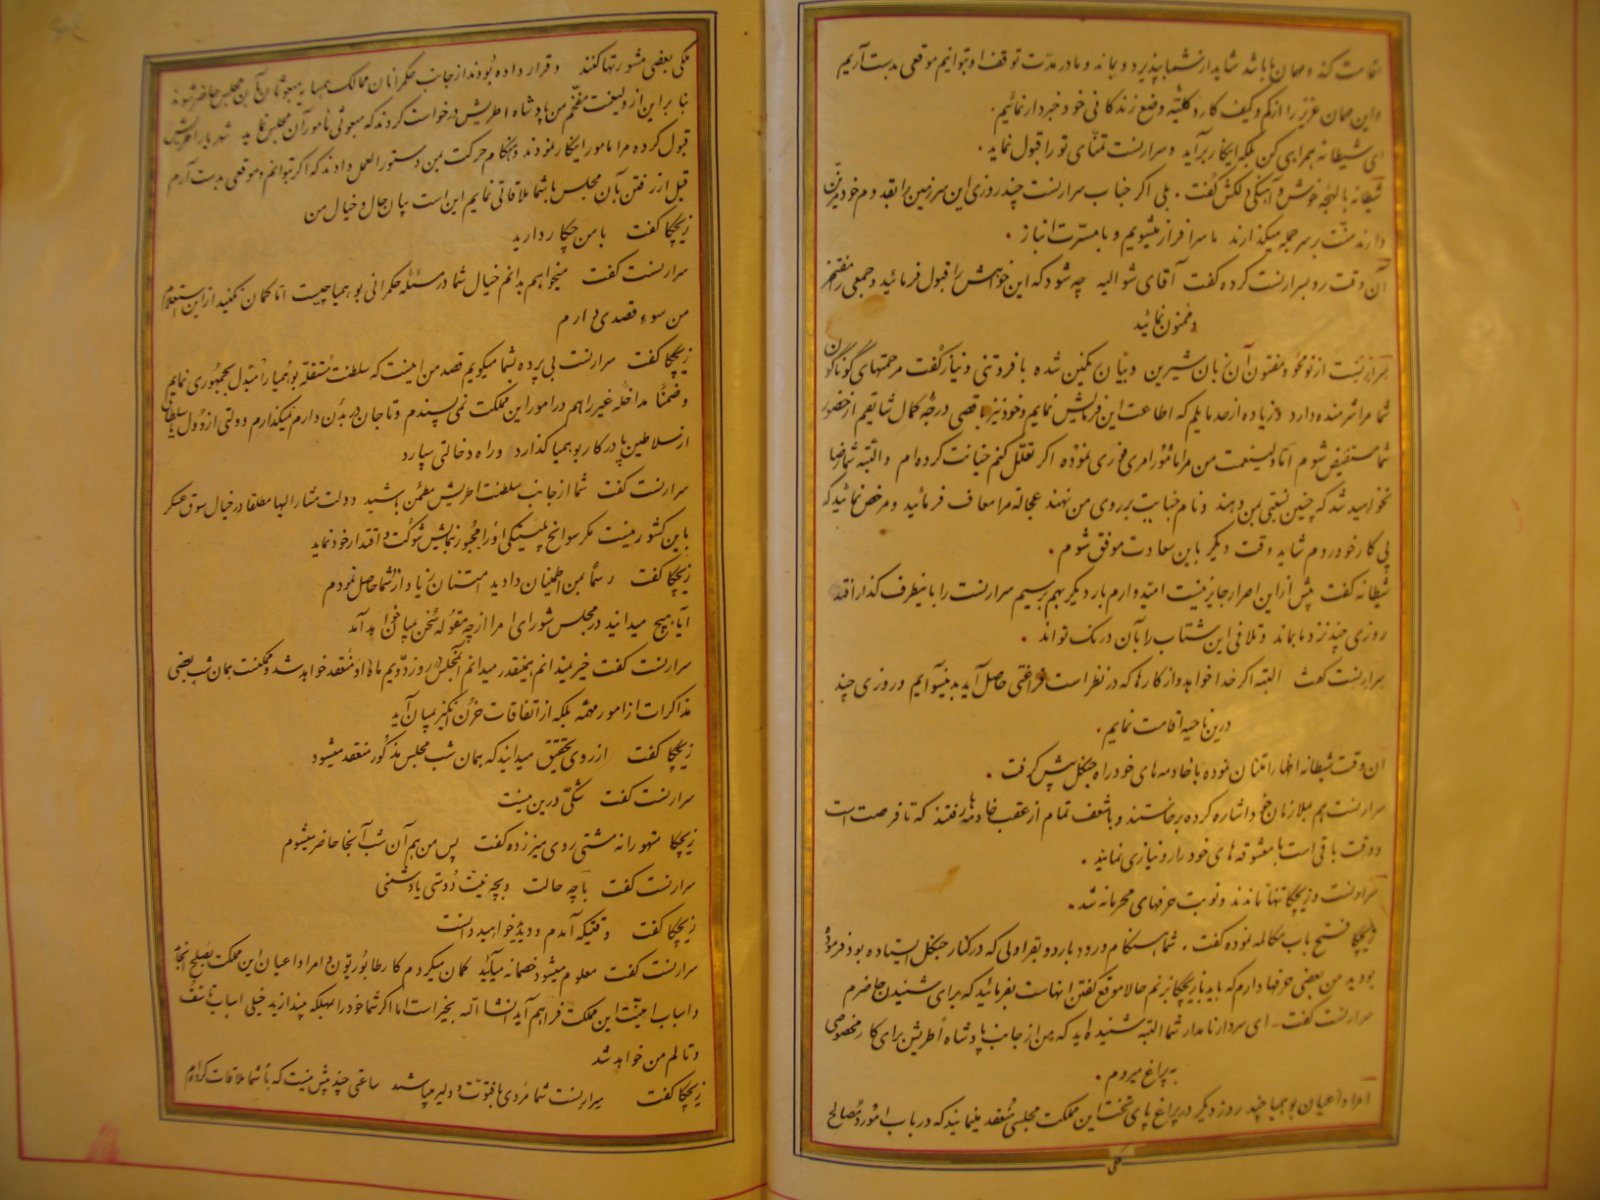 اقامت کند و مهمان ما باشد شاید از شما بپذیرد و بماند و ما در مدّت توقف او بتوانیم موقعی بدست آریم
و این مهمان عزیز را از کم و کیف کار و کلیّه وضع زندکانی خود خبردار نمائیم.
ای شیطانه همراهی کن بلکه اینکار برآید و سرارنست تمنّای تو را قبول نماید.
شیطانه با لهجه خوش و آهنکی دلکش کفت. بلی اکر جناب سرارنست چند روزی این سرزمین را بقدوم خود مزین
دارند منّت بر سر همه میکذارند ما سرافراز میشویم و با مسرّت انباز.
آن وقت رو بسرارنست کرده کفت آقای شوالیه چه شود که این خواهش را قبول فرمائید و جمعی را مفتخر
و ممنون نمائید
سرارنست از نو محو و مفتون آن زبان شیرین و بیان نمکین شده با فروتنی و نیاز کفت مرحمتهای کوناکون
شما مرا شرمنده دارد و زیاده از حد مایلم که اطاعت این فرمایش نمایم و خود نیز باقصی درجه کمال شایقم از حضور
شما مستفیض شوم امّا ولینعمت من مرا مأمور امری فوری نموده اکر تعلّل کنم خیانت کرده ام و البته شما رضا
نخواهید شد که چنین نسبتی بمن دهند و نام خیانت بر روی من نهند عجالةً مرا معاف فرمائید و مرخص نمائید که
پی کار خود روم شاید وقت دیکر باین سعادت موفق شوم.
شیطانه کفت بیش از این اصرار جایز نیست امّیدوارم بار دیکر بهم برسیم سرارنست را باینطرف کذار افتد
روزی چند نزد ما بماند و تلافی این شتاب را بآن درنک تواند.
سرارنست کفت البته اکر خدا خواهد و از کارها که در نظر است فراغتی حاصل آید بدینسو آیم و روزی چند
درین ناحیه اقامت نمایم.
آن وقت شیطانه اظهار امتنان نموده با خادمه های خود راه جنکل پیش کرفت.
سرارنست هم بملازمان خود اشاره کرده برخاستند و با شعف تمام از عقب خادمه ها رفتند که تا فرصت است
و وقت باقی است با معشوقه های خود راز و نیازی نمایند.
سرارنست و زیچکا تنها ماندند و نوبت حرفهای محرمانه شد.
زیچکا فتح باب مکالمه نموده کفت. شما هنکام ورود باردو بقراولی که در کنار جنکل ایستاده بود فرموده
بودید من بعضی حرفها دارم که باید با زیچکا بزنم حالا موقع کفتن آنهاست بفرمائید که برای شنیدن حاضرم
سرارنست کفت ـ ای سردار نامدار شما البته شنیده اید که من از جانب پادشاه اطریش برای کار مخصوصی
به پراغ میروم.
امرا و اعیان بوهمیا چند روز دیکر در پراغ پای تخت این مملکت مجلسی منعقد مینمایند که در باب امور و مصالح
ملکی
ملکی بعضی مشورتها کنند و قرار داده بودند از جانب حکمرانان ممالک همسایه مبعوثان بآن مجلس حاضر شوند
بنا بر این از ولینعمت مفخّم من پادشاه اطریش درخواست کردند که مبعوثی مأمور آن مجلس نماید شهریار اطریش
قبول کرده مرا مامور اینکار نمودند و هنکام حرکت بمن دستورالعمل دادند که اکر بتوانم و موقعی بدست آرم
قبل از رفتن بآن مجلس با شما ملاقاتی نمایم این است بیان حال و خیال من
زیچکا کفت با من چکار دارید
سرارنست کفت میخواهم بدانم خیال شما در مسئله حکمرانی بوهمیا چیست امّا کمان نکنید از این استعلام
من سوء قصدی دارم
زیچکا کفت سرارنست بی پرده بشما میکویم قصد من اینست که سلطنت مستقلّه بوهمیا را مبدّل بجمهوری نمایم
و ضمناً مداخله غیر را هم در امور این مملکت نمی پسندم و تا جان در بدن دارم نمیکذارم دولتی از دول یا سلطانی
از سلاطین پا در کار بوهمیا کذارد و راه دخالتی سپارد
سرارنست کفت شما از جانب سلطنت اطریش مطمئن باشید دولت مشار الیها مطلقا در خیال سوق عسکر
باین کشور نیست مکر سوانح پلیتیکی او را مجبور بنمایش شوکت و اقتدار خود نماید
زیچکا کفت رسماً بمن اطمینان دادید امتنان زیاد از شما حاصل نمودم
آیا هیچ میدانید در مجلس شورای امرا از چه مقوله سخن بمیان خواهد آمد
سرارنست کفت خیر نمیدانم همینقدر میدانم آنمجلس در روز دویم ماه اوت منعقد خواهد شد و ممکنست همان شب بعضی
مذاکرات از امور مهمّه بلکه از اتفاقات حزن انکیز بمیان آید
زیچکا کفت از روی تحقیق میدانید که همان شب مجلس مذکور منعقد میشود
سرارنست کفت شکّی درین نیست
زیچکا متهورانه مشتی روی میز زده کفت پس من هم آن شب آنجا حاضر میشوم
سرارنست کفت با چه حالت و بچه نیّت دوستی یا دشمنی
زیچکا کفت وقتیکه آمدم و دیدید خواهید دانست
سرارنست کفت معلوم میشود خصمانه میآئید کمان میکردم کار طابوریتون و امرا و اعیان این مملکت بصلح انجامد
و اسباب امنیّت این مملکت فراهم آید انشاءالله بخیر است اما اکر شما خود را بمهلکه بیندازید خیلی اسباب تاسّف
و تالم من خواهد شد
زیچکا کفت سرارنست شما مردی با فتوّت و دلیر میباشید ساعتی چند بیش نیست که با شما ملاقات کرده‌ام